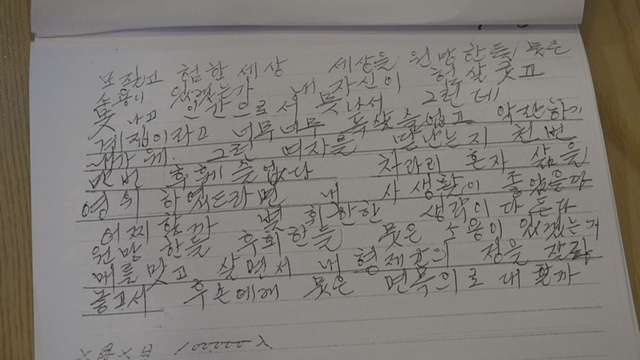 모질고 험한 세상 세상들 원망한들 뭇은
소용이 있겠는가 내 자신이 허살 궂고
못 나고 인간으로서 못나서 그런데
계집이라고 너무너무 독살슬럽고 악잔하기
내가 왜. 그런 여자을 만난는지 천번
만번 후회슬럽다 차라리 혼자 삶을
영위 하였드라면 내 사생활이 좋았을다
어찌할까 별 휘한한 생각이 다 든다
원망 한들 후회한들 뭇은 소용이 있겠는가
매를 맞고 살면서 내 형제간의 정을 갈라
놓고서 후손에게 뭇은 면목의로 대할까